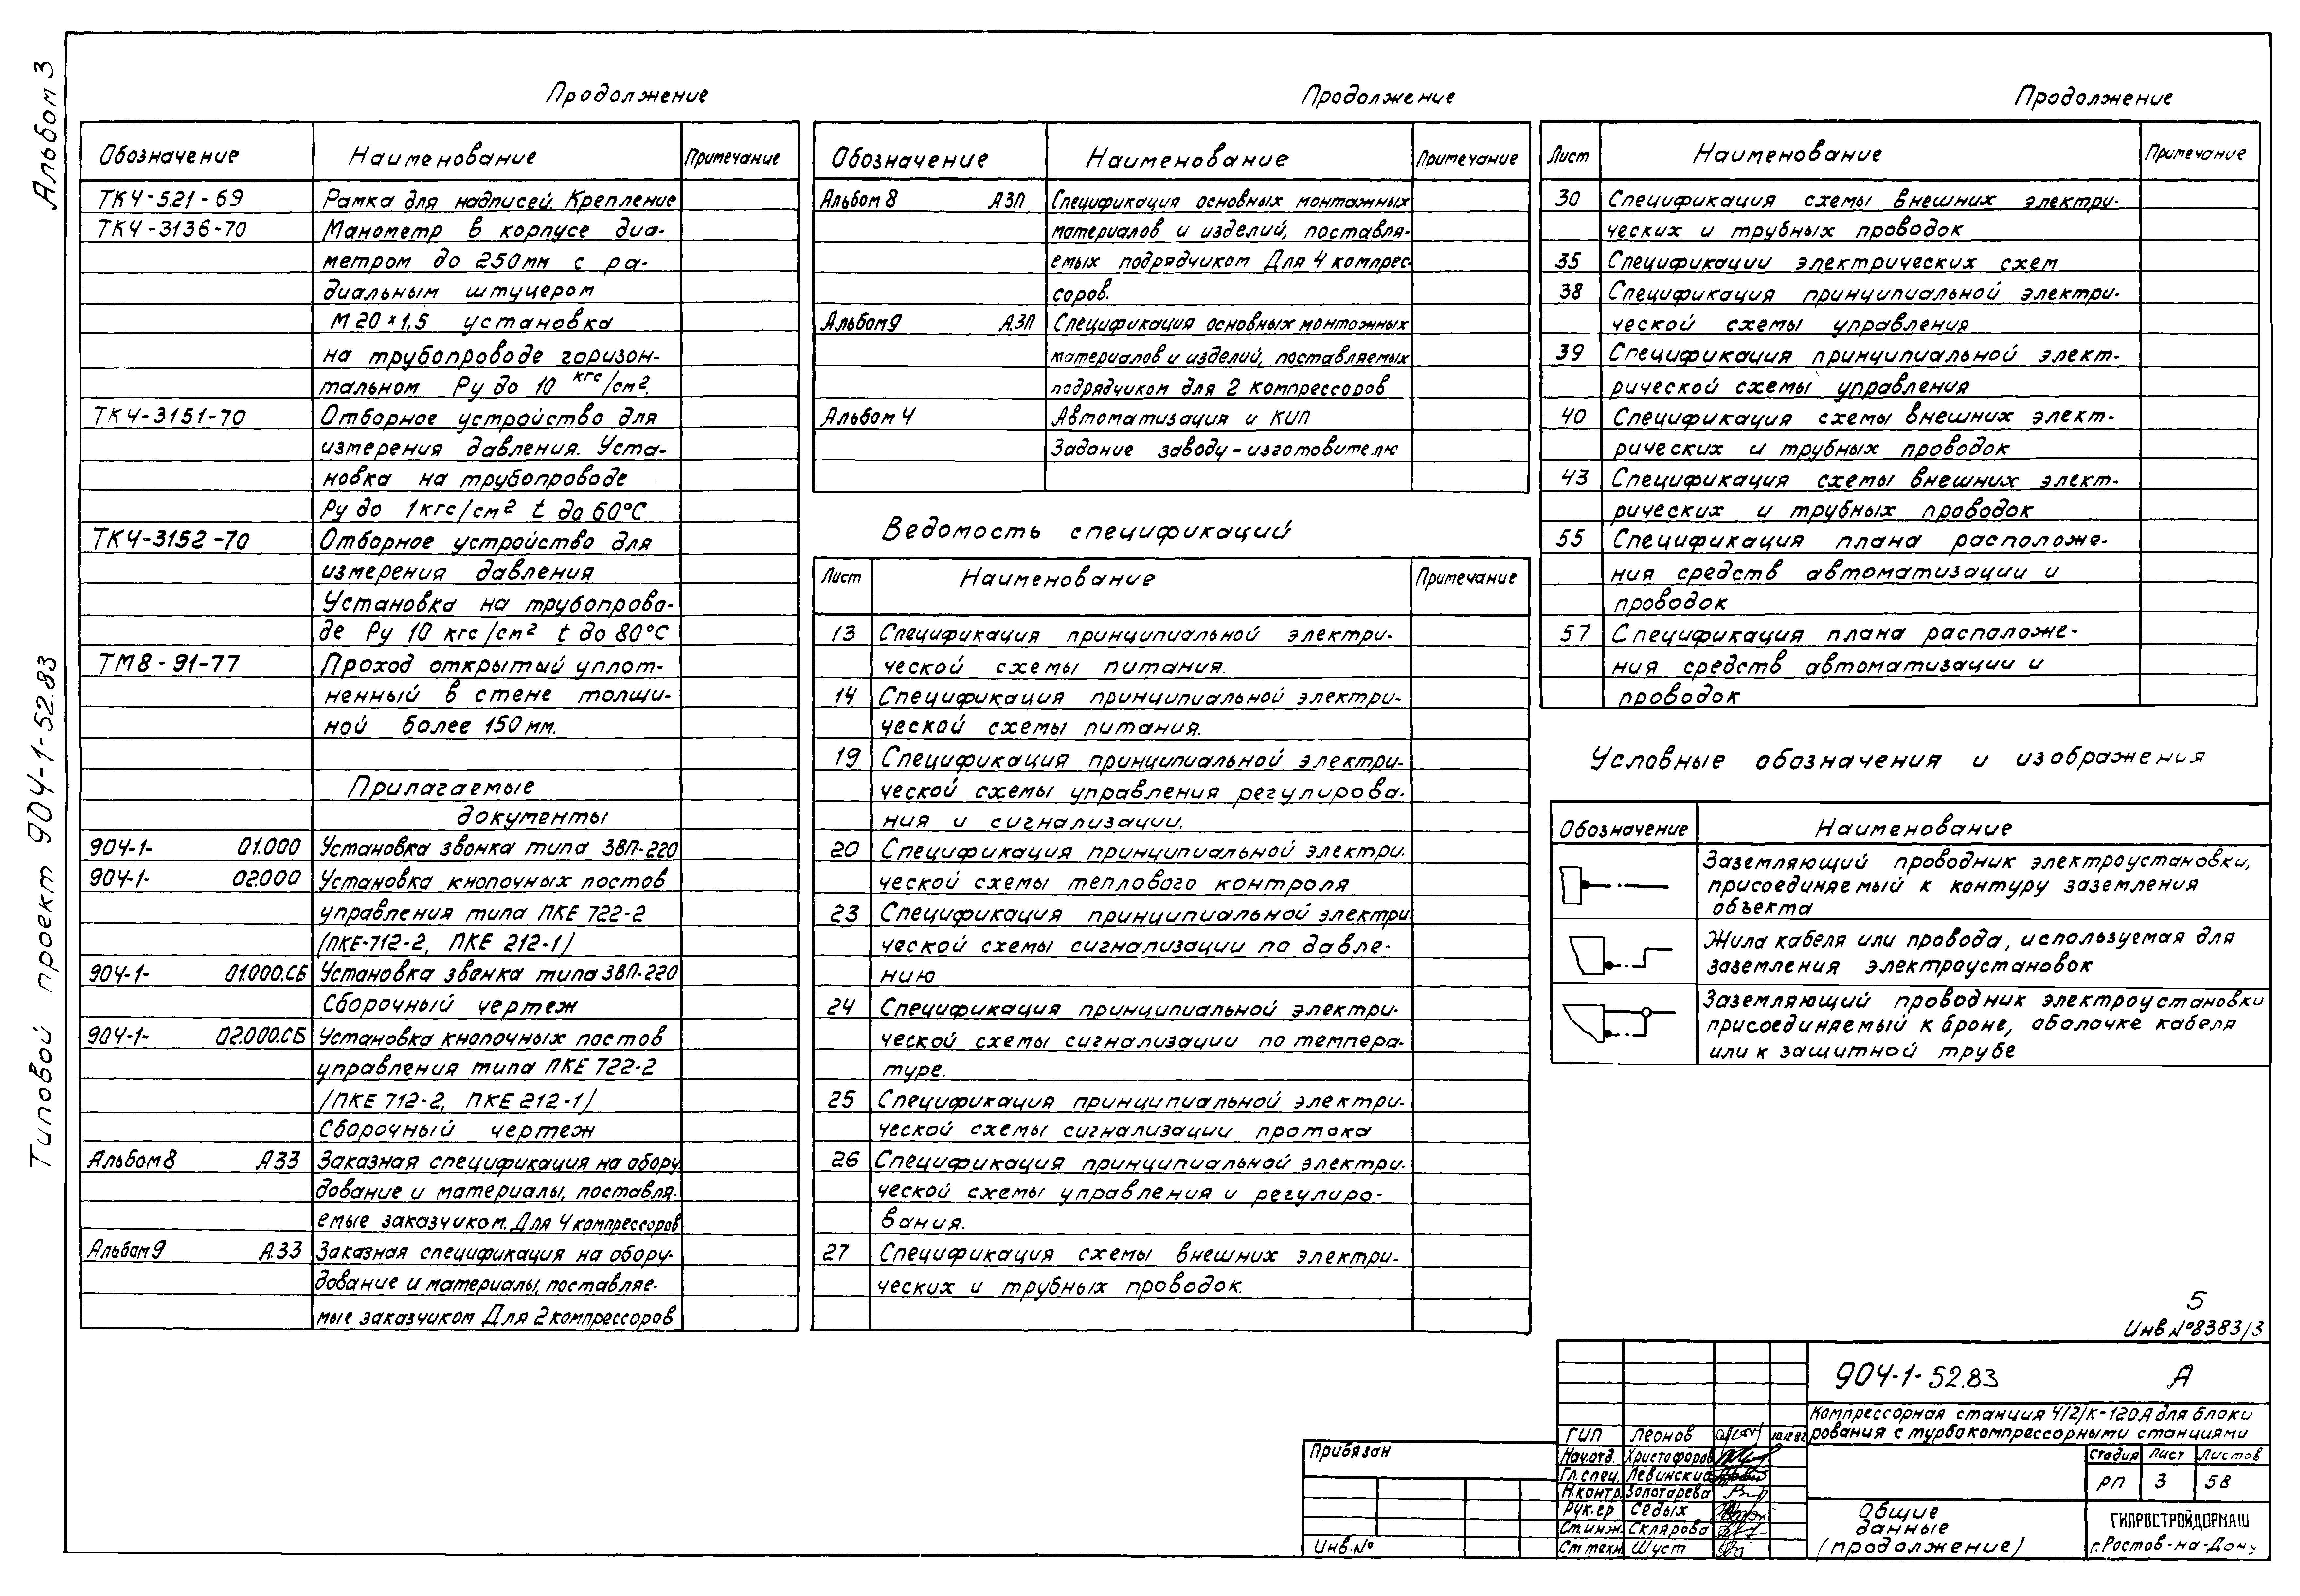 Альбом 3
Типовой проект 904-1-52.83
Продолжение
Обозначение Наименование Примечание
ТК4-521-69 Рамка для надписей. Крепление
ТК4-3136-70 Манометр в корпусе диа-
метром до 250мм с ра-
диальным штуцером
М20×1,5 установка
на трубопроводе горизон-
тальном Ру до 10 кгс/см².
ТК4-3151-70 Отборное устройство для
измерения давления. Уста-
новка на трубопроводе
Ру до 1кгс/см² t до 60°С
ТК4-3152-70 Отборное устройство для
измерения давления
Установка на трубопрово-
де Ру 10 кгс/см² t до 80°С
ТМ8-91-77 Проход открытый уплот-
ненный в стене толщи-
ной более 150мм.
Прилагаемые
документы
904-1- 01.000 Установка звонка типа ЗВП-220
904-1- 02.000 Установка кнопочных постов
управления типа ПКЕ 722-2
/ПКЕ-712-2, ПКЕ 212-1/
904-1- 01.000.СБ Установка звонка типа ЗВП-220
Сборочный чертеж
904-1- 02.000.СБ Установка кнопочных постов
управления типа ПКЕ 722-2
/ПКЕ 712-2, ПКЕ 212-1/
Сборочный чертеж
Альбом 8 А33 Заказная спецификация на обору
дование и материалы, поставля-
емые заказчиком. Для 4 компрессоров
Альбом 9 А.33 Заказная спецификация на обору-
дование и материалы, поставляе-
мые заказчиком Для 2 компрессоров
Продолжение
Обозначение Наименование Примечание
Альбом 8 А3П Спецификация основных монтажных
материалов и изделий, поставля-
емых подрядчиком Для 4 компрес-
соров.
Альбом 9 А.3П Спецификация основных монтажных
материалов и изделий, поставляемых
подрядчиком для 2 компрессоров
Альбом 4 Автоматизация и КИП
Задание заводу-изготовителю
Ведомость спецификаций
Лист Наименование Примечание
13 Спецификация принципиальной электри-
ческой схемы питания.
14 Спецификация принципиальной электри-
ческой схемы питания.
19 Спецификация принципиальной электри-
ческой схемы управления регулирова-
ния и сигнализации.
20 Спецификация принципиальной электри.
ческой схемы теплового контроля
23 Спецификация принципиальной электри
ческой схемы сигнализации по давле-
нию
24 Спецификация принципиальной электри-
ческой схемы сигнализации по темпера-
туре.
25 Спецификация принципиальной электри-
ческой схемы сигнализации протока
26 Спецификация принципиальной электри-
ческой схемы управления и регулиро-
вания.
27 Спецификация схемы внешних электри-
ческих и трубных проводок.
Продолжение
Лист Наименование Примечание
30 Спецификация схемы внешних электри-
ческих и трубных проводок
35 Спецификации электрических схем
38 Спецификация принципиальной электри-
ческой схемы управления
39 Спецификация принципиальной элект-
рической схемы управления
40 Спецификация схемы внешних элект-
рических и трубных проводок
43 Спецификация схемы внешних элект-
рических и трубных проводок
55 Спецификация плана расположе-
ния средств автоматизации и
проводок
57 Спецификация плана расположе-
ния средств автоматизации и
проводок
Условные обозначения и изображения
Обозначение Наименование
Заземляющий проводник электроустановки,
присоединяемый к контуру заземления
объекта
Жила кабеля или провода, используемая для
заземления электроустановок
Заземляющий проводник электроустановки
присоединяемый к броне, оболочке кабеля
или к защитной трубе
5
Инв №8383/3
904-1-52.83 А
Компрессорная станция 4/2/К-120А для блоки
рования с турбокомпрессорными станциями
ГИП Леонов
Нач.отд. Христофоров
Гл.спец. Левинский
Н.контр. Золотарева
Рук.гр Седых
Ст.инж. Склярова
Ст техн. Шуст
Стадия Лист Листов
РП 3 58
Общие
данные
(продолжение)
ГИПРОСТРОЙДОРМАШ
г.Ростов-на-Дону
Привязан
Инв.№